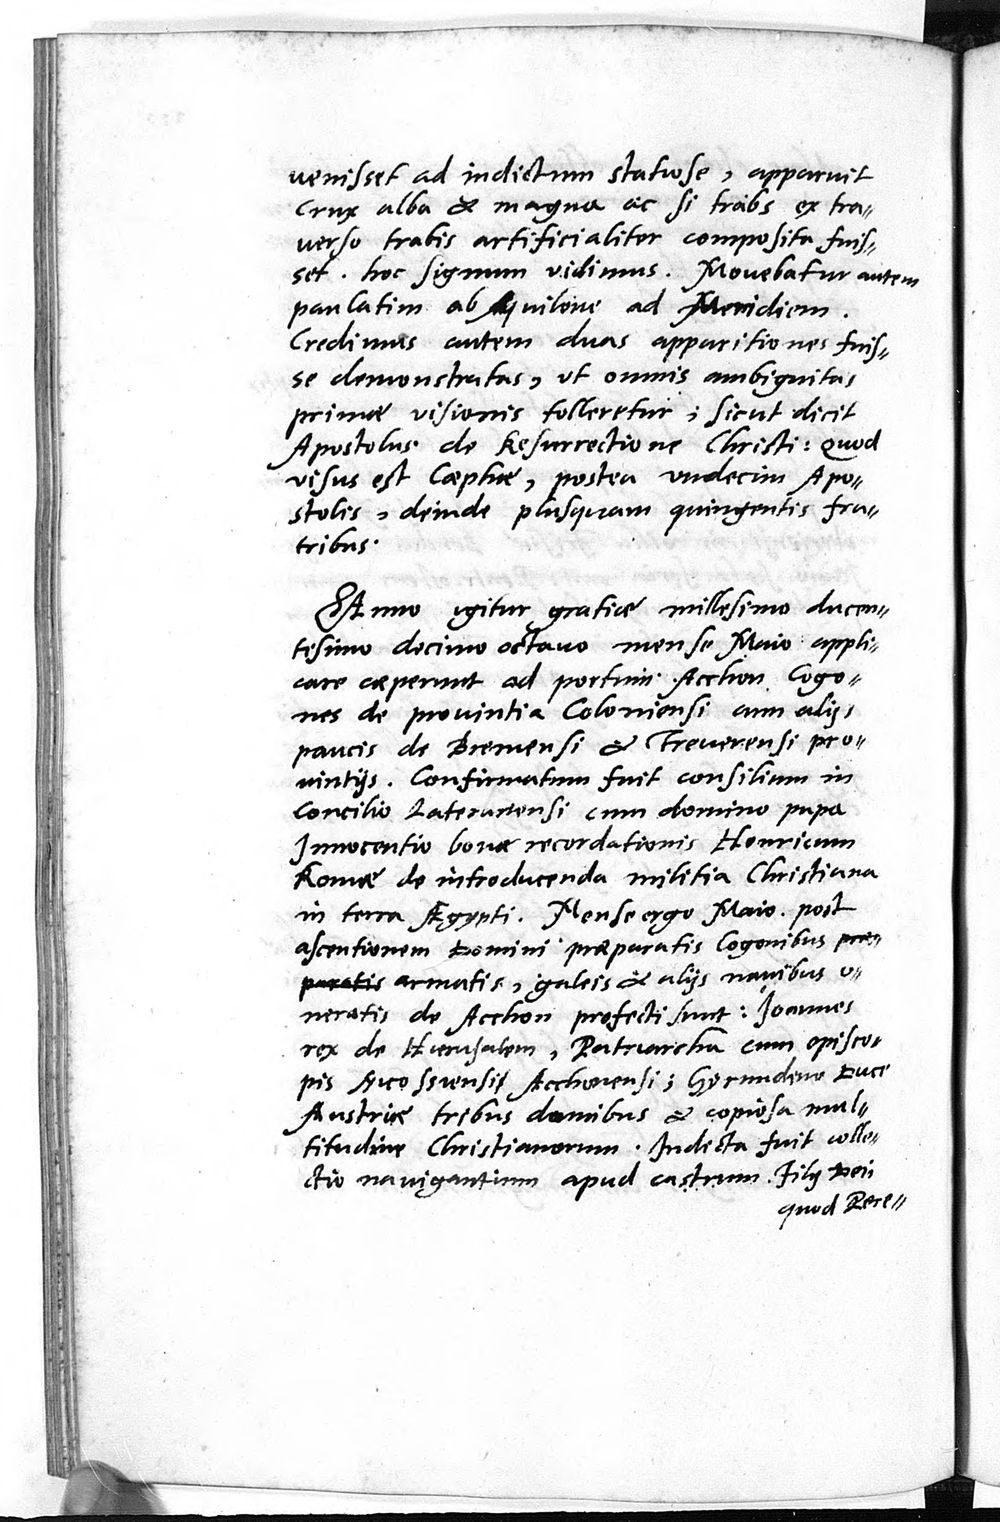 uenisset ad indictum statuose, apparuit
Crux alba & magna ac si trabs ex tra„
uerso trabis artificialiter composita fuis„
set. hoc signum vidimus. Mouebatur autem
paulatim ab Aquilone ad Meridiem.
Credimus autem duas apparitiones fuis„
se demonstratas, vt omnis ambiguitas
primæ visionis tolleretur, sicut dicit
Apostolus de Resurrectione Christi: quod
visus est Cæphæ, postea vndecim Apo„
stolis, deinde plusquam quingentis fra„
tribus.
Anno igitur gratiæ millesimo ducen„
tesimo decimo octauo mense Maio appli„
care cæperunt ad portum Acchon Cogo„
nes de prouintia Coloniensi cum alijs
paucis de Bremensi & Treuerensi pro„
uintijs. Confirmatum fuit consilium in
Concilio Lateranensi cum domino papa
Innocentio bonæ recordationis Henricum
Romæ de introducenda militia Christiana
in terra Ægypti. Mense ergo Maio. post
ascentionem Domini præparatis Cogonibus præ„
paratis armatis, galeis & alijs nauibus o„
neratis de Acchon profecti sunt: Joannes
rex de Hierusalem, Patriarcha cum episco„
pis Nicossiensi Acchonensi; Duce
Austriæ tribus domibus & copiosa mul„
titudine Christianorum. Indicta fuit colle„
ctio nauigantium apud castrum Filij Dei
quod Pere„